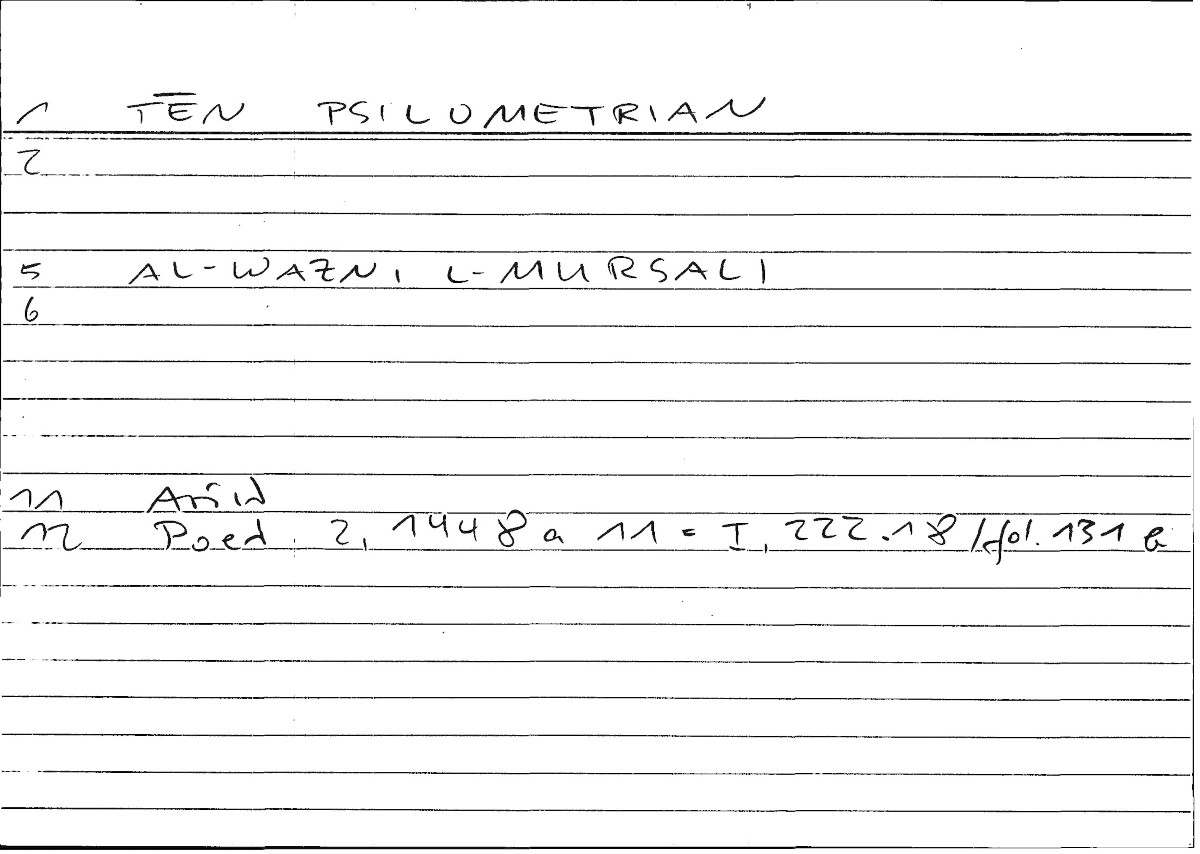 1 TĒN PSILOMETRIAN
2
5 AL-WAZNI L-MURSALI
6
11
12 Poet. 2, 1448 a 11 = I, 222.18 / fol. 131 b